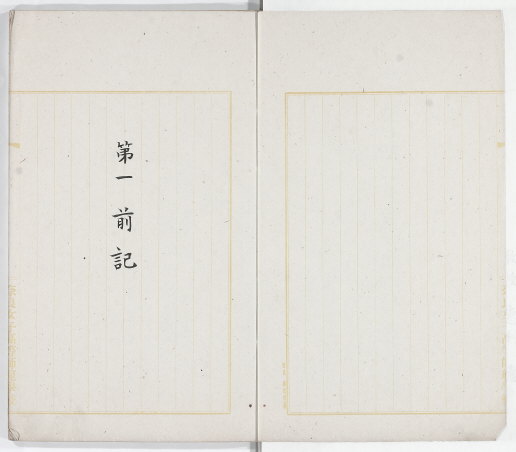 第一前記